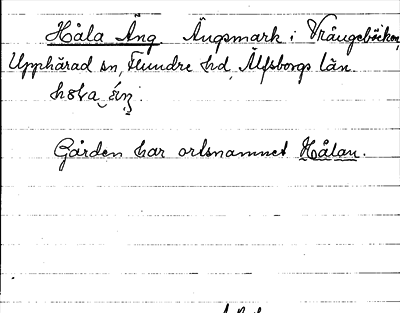 Håla Äng Ängsmark i Vrångebäcken,
Upphärad sn, Flundre hd, Älfsborgs län.
Gården har ortsnamnet Hålan.